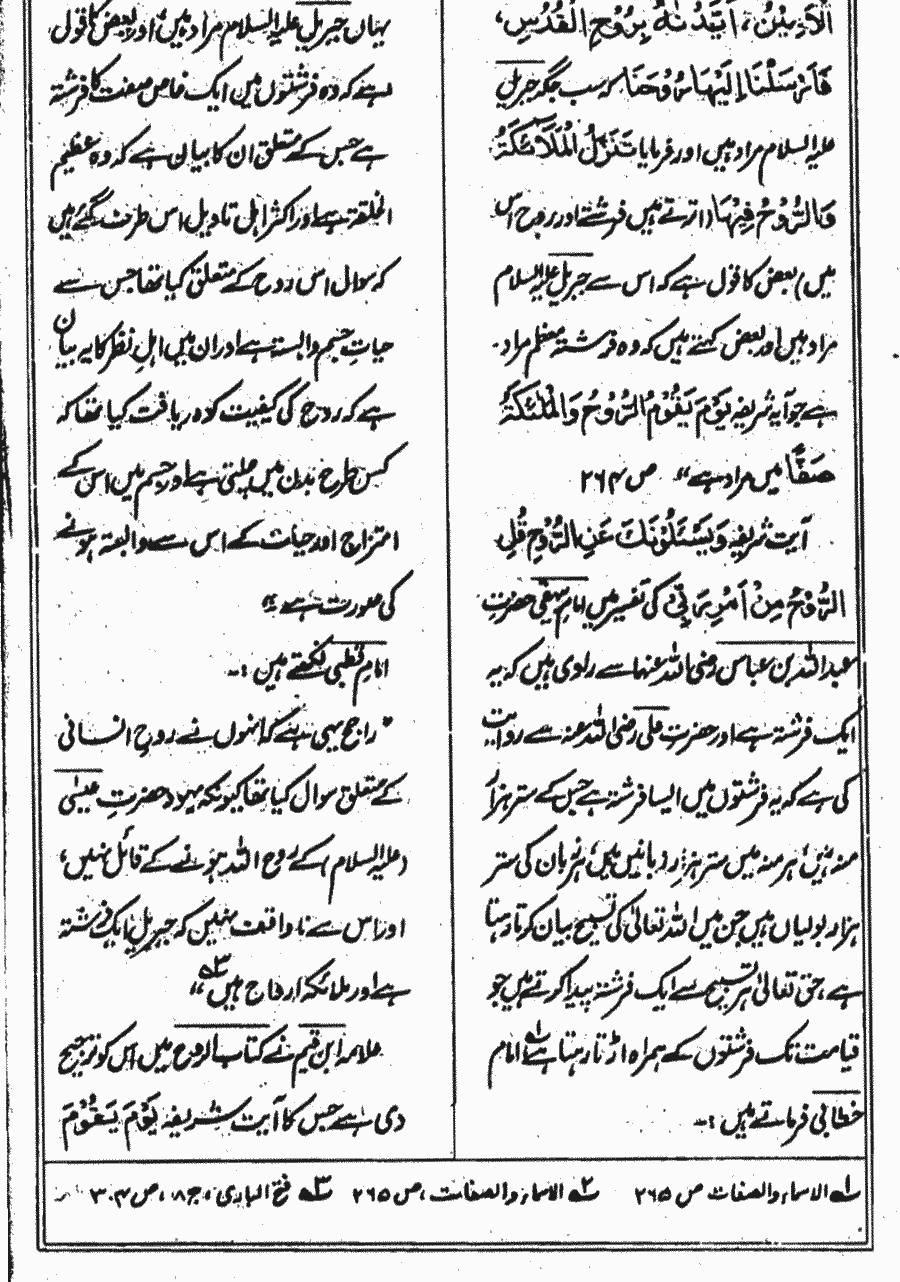 الْاَمِیْنُ، اَیَّدْنٰهُ بِرُوْحِ الْقُدُسِ،
فَاَرْسَلْنَا اِلَیْهَا رُوْحَنَا کہ سب جگہ جبریل
علیہ السلام مراد ہیں اور فرمایا تَنَزَّلُ الْمَلَآئِكَةُ
وَالرُّوْحُ فِیْهَا (اترتے ہیں فرشتے اور روح اس
میں) بعض کا قول ہے کہ اس سے جبریل علیہ السلام
مراد ہیں اور بعض کہتے ہیں کہ وہ فرشتہ معظم مراد
ہے جو آیہ شریفہ یَوْمَ یَقُوْمُ الرُّوْحُ وَالْمَلٰٓئِكَةُ
صَفًّا میں مراد ہے“ ص ۲۶۴
آیت شریفہ وَیَسْئَلُوْنَكَ عَنِ الرُّوْحِ قُلِ
الرُّوْحُ مِنْ اَمْرِ رَبِّیْ کی تفسیر میں امام بیہقی حضرت
عبد اللہ بن عباس رضی اللہ عنہما سے راوی ہیں کہ یہ
ایک فرشتہ ہے اور حضرت علی رضی اللہ عنہ سے روایت
کی ہے کہ یہ فرشتوں میں ایسا فرشتہ ہے جس کے ستر ہزار
منہ ہیں، ہر منہ میں ستر ہزار زبانیں ہیں، ہر زبان کی ستر
ہزار بولیاں ہیں جن میں اللہ تعالیٰ کی تسبیح بیان کرتا رہتا
ہے، حق تعالیٰ ہر تسبیح سے ایک فرشتہ پیدا کرتے ہیں جو
قیامت تک فرشتوں کے ہمراہ اڑتا رہتا ہے ؎۱ امام
خطابی فرماتے ہیں :۔
یہاں جبریل علیہ السلام مراد ہیں، اور بعض کا قول
ہے کہ وہ فرشتوں میں ایک خاص صفت کا فرشتہ
ہے جس کے متعلق ان کا بیان ہے کہ وہ عظیم
الخلقۃ ہے اور اکثر اہل تاویل اس طرف گئے ہیں
کہ سوال اس روح کے متعلق کیا تھا جس سے
حیاتِ جسم وابستہ ہے اور ان میں اہلِ نظر کا یہ بیان
ہے کہ روح کی کیفیت کو دریافت کیا تھا کہ
کس طرح بدن میں چلتی ہے اور جسم میں اس کے
امتزاج اور حیات کے اس سے وابستہ ہونے
کی صورت ہے ؎۲
امام قرطبی لکھتے ہیں :۔
”راجح یہی ہے کہ انہوں نے روحِ انسانی
کے متعلق سوال کیا تھا کیونکہ یہود حضرتِ عیسیٰ
(علیہ السلام) کے روح اللہ ہونے کے قائل نہیں،
اور اس سے ناواقف نہیں کہ جبریل ایک فرشتہ
ہے اور ملائکہ ارواح ہیں“ ؎۳
علامہ ابن قیم نے کتاب الروح میں اس کو ترجیح
دی ہے جس کا آیت شریفہ یَوْمَ یَقُوْمُ
؎۱ الاسماء والصفات ص ۲۶۵ ؎۲ الاسماء والصفات، ص ۲۶۵ ؎۳ فتح الباری، ج ۸، ص ۳۰۴